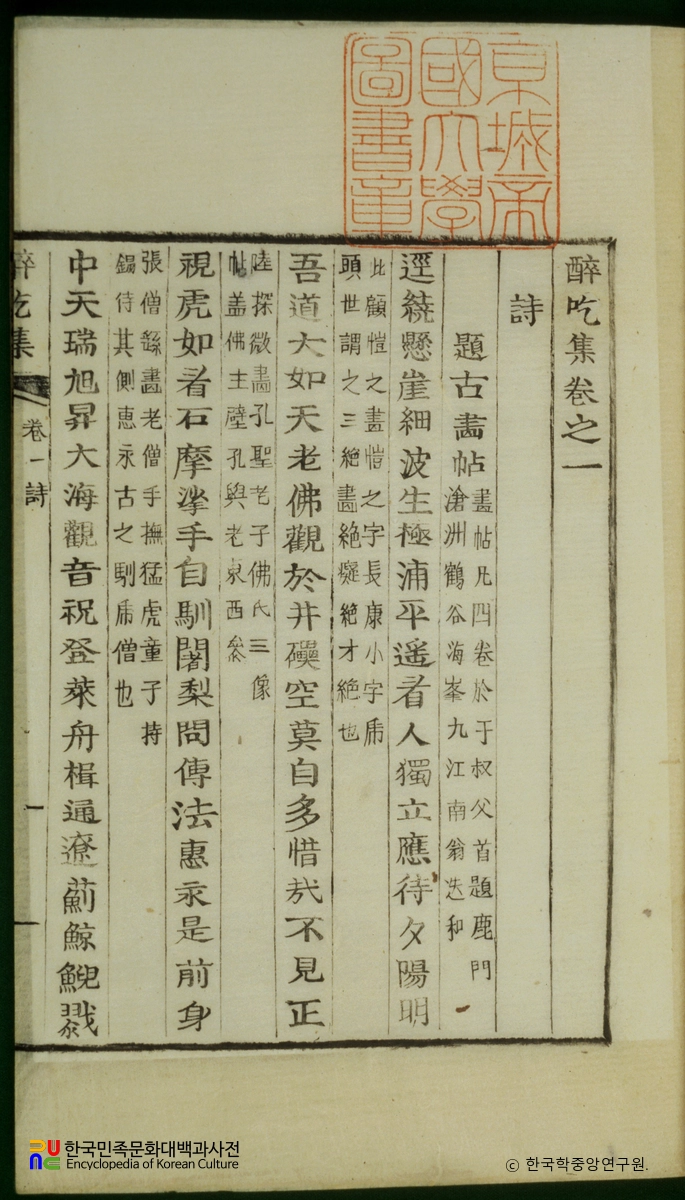 京城帝
國大學
圖書章
醉吃集卷之一
詩
題古畵帖
畫帖凡四卷於于叔父首題鹿門
滄洲鶴谷海峯九江南翁迭和
逕繞懸崖細波生極浦平遥看人獨立應待夕陽明
此顧愷之畫愷之字長康小字乕
頭世謂之三絶畵絶癡絶才絶也
吾道大如天老佛觀於井空莫自多惜㦲不見正
陸探微畵孔聖老子佛氏三像
帖盖佛主孔與老東西叅
視虎如看石摩挲手自馴闍梨問傳法惠永是前身
張僧繇畵老僧手撫猛虎童子持
錫待其側惠永古之馴乕僧也
中天瑞旭昇大海觀音祝登萊舟楫通遼薊鯨鯢戮
醉吃集
卷一
詩
一
한국민족문화대백과사전
Encyclopedia of Korean Culture
ⓒ 한국학중앙연구원.